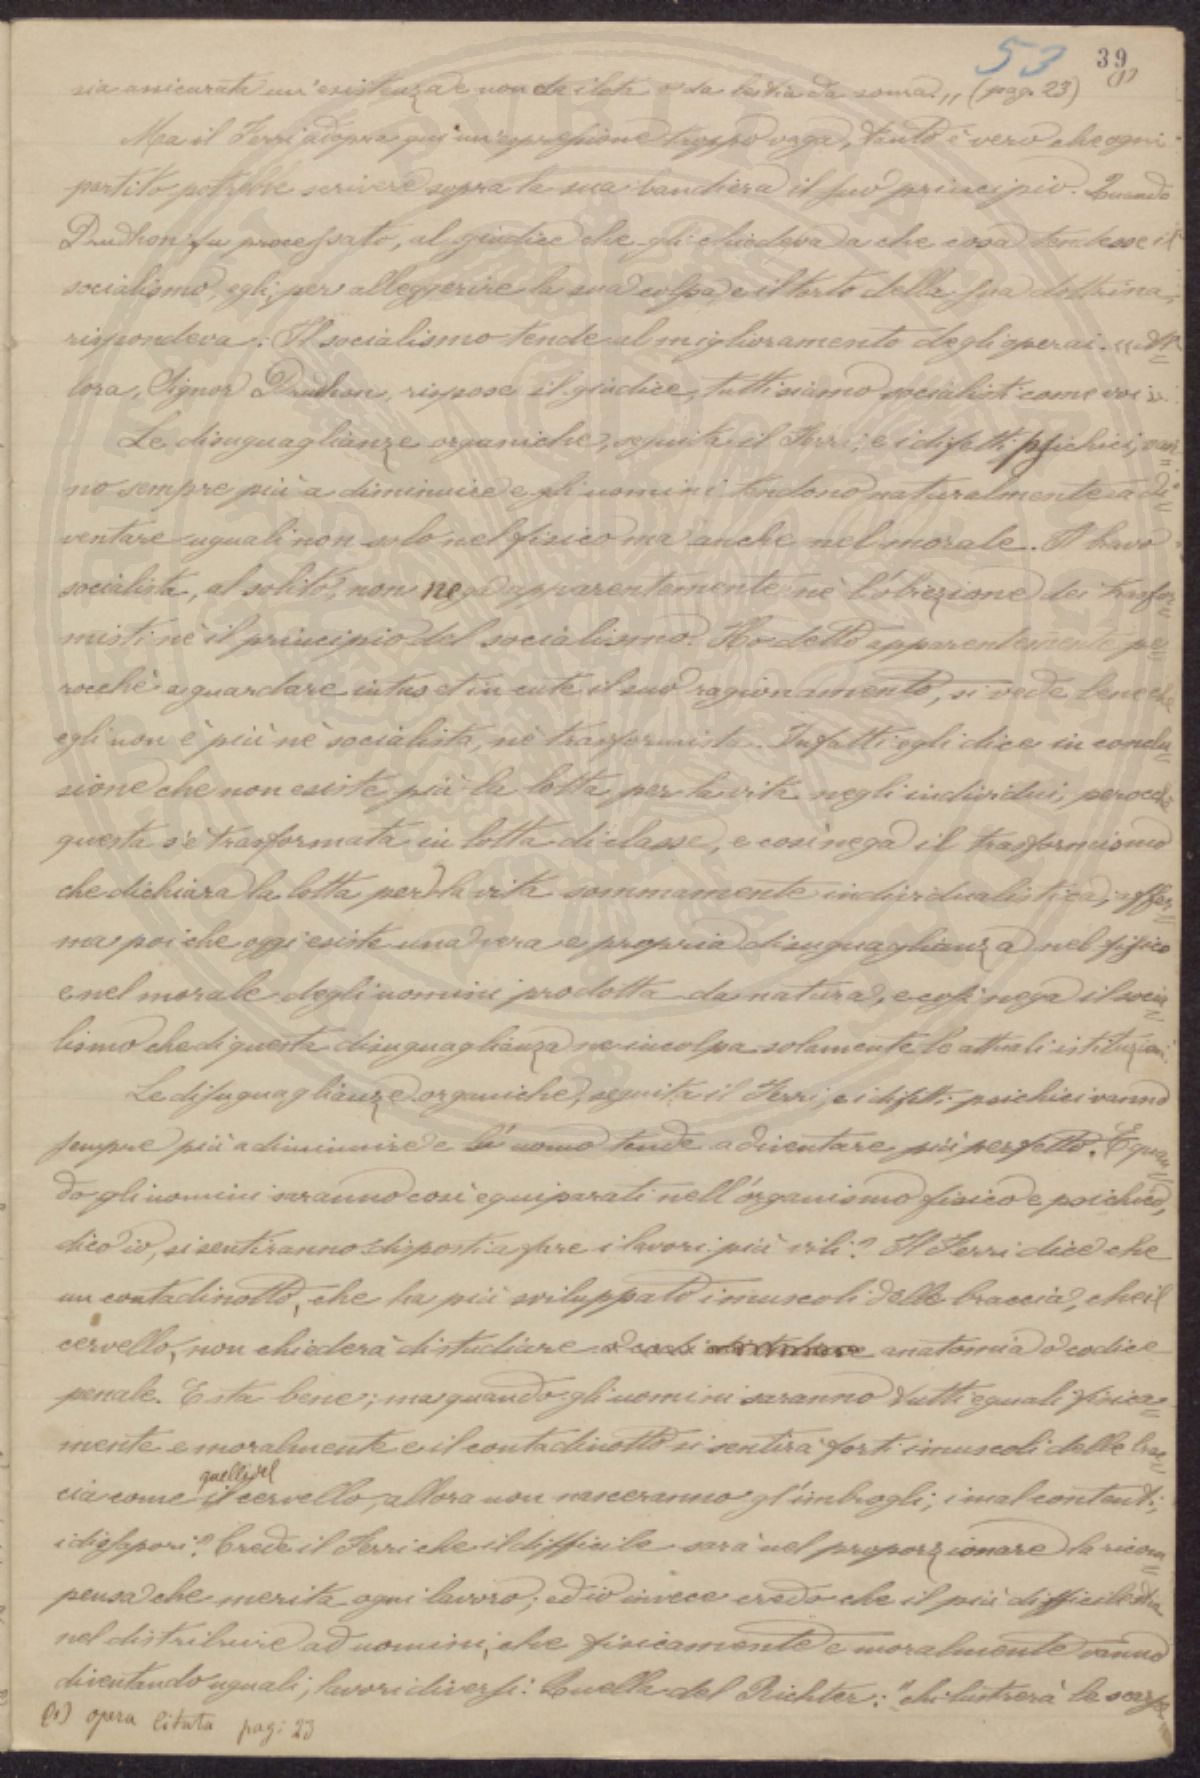 53 39
sia assicurata un'esistenza e non da ilota o da bestia da soma.,, (pag. 23) (1)
Ma il Ferri adopra qui un'espressione troppo vaga, tanto è vero che ogni
partito potrebbe scrivere sopra la sua bandiera il suo principio. Quando
Prudhon fu processato, al giudice che gli chiedeva a che cosa tendesse il
socialismo, egli, per alleggerire la sua colpa e il torto della sua dottrina,
rispondeva: Il socialismo tende al miglioramento degli operai. ,, Al=
lora, Signor Prudhon, rispose il giudice, tutti siamo socialisti come voi
Le disuguaglianze organiche, seguita il Ferri, e i difetti psichici, van=
no sempre più a diminuire e gli uomini tendono naturalmente a di=
ventare uguali non solo nel fisico ma anche nel morale. Il bravo
socialista, al solito, non nega apparentemente nè l'obiezione dei trasfor=
misti nè il principio del socialismo. Ho detto apparentemente pe=
rocchè a guardare intus et in cute il suo ragionamento, si vede bene che
egli non è più nè socialista, nè trasformista. Infatti egli dice in conclu=
sione che non esiste più la lotta per la vita negli individui, perocchè
questa s'è trasformata in lotta di classe, e così nega il trasformismo
che dichiara la lotta per la vita sommamente individualistica; affer=
ma poi che oggi esiste una vera e propria disuguaglianza nel fisico
e nel morale degli uomini prodotta da natura, e così nega il socia=
lismo che di questa disuguaglianza ne incolpa solamente le attuali istituzioni.
Le disuguaglianze organiche, seguita il Ferri, e i difetti psichici vanno
sempre più a diminuire e l'uomo tende a diventare più perfetto. E quan=
do gli uomini saranno così equiparati nell'organismo fisico e psichico,
dico io, si sentiranno disposti a fare i lavori più vili? Il Ferri dice che
un contadinotto, che ha più sviluppato i muscoli delle braccia, che il
cervello, non chiederà di studiare anatomia o codice
penale. E sta bene; ma quando gli uomini saranno tutti eguali fisica=
mente e moralmente e il contadinotto si sentirà forti i muscoli delle brac=
quelli del
cia come il cervello, allora non nasceranno gl'imbrogli; i malcontenti;
i dissapori? Crede il Ferri che il difficile sarà nel proporzionare la ricom=
pensa che merita ogni lavoro; ed io invece credo che il più difficile stia
nel distribuire ad uomini, che fisicamente e moralmente vanno
diventando uguali, lavori diversi. Quella del Richter: "chi lustrerà le scarpe
(1) opera citata pag: 23